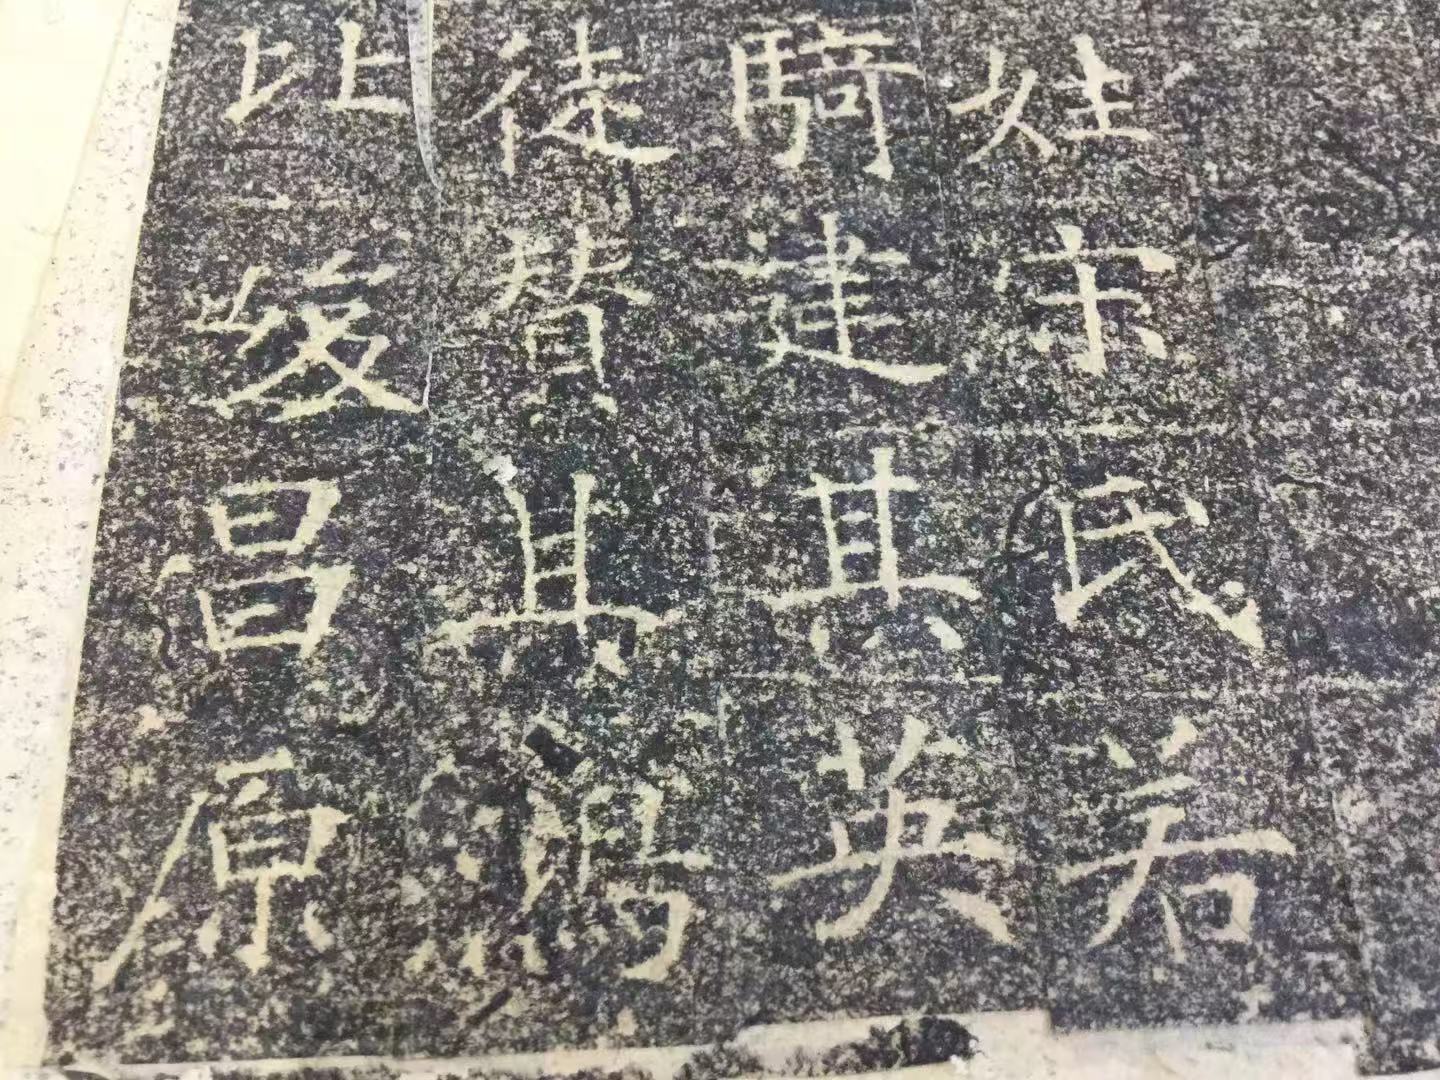 姓宋氏若
騎建其英
徒替其鴻
址峻昌原